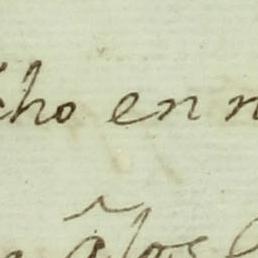 cho en n
â los